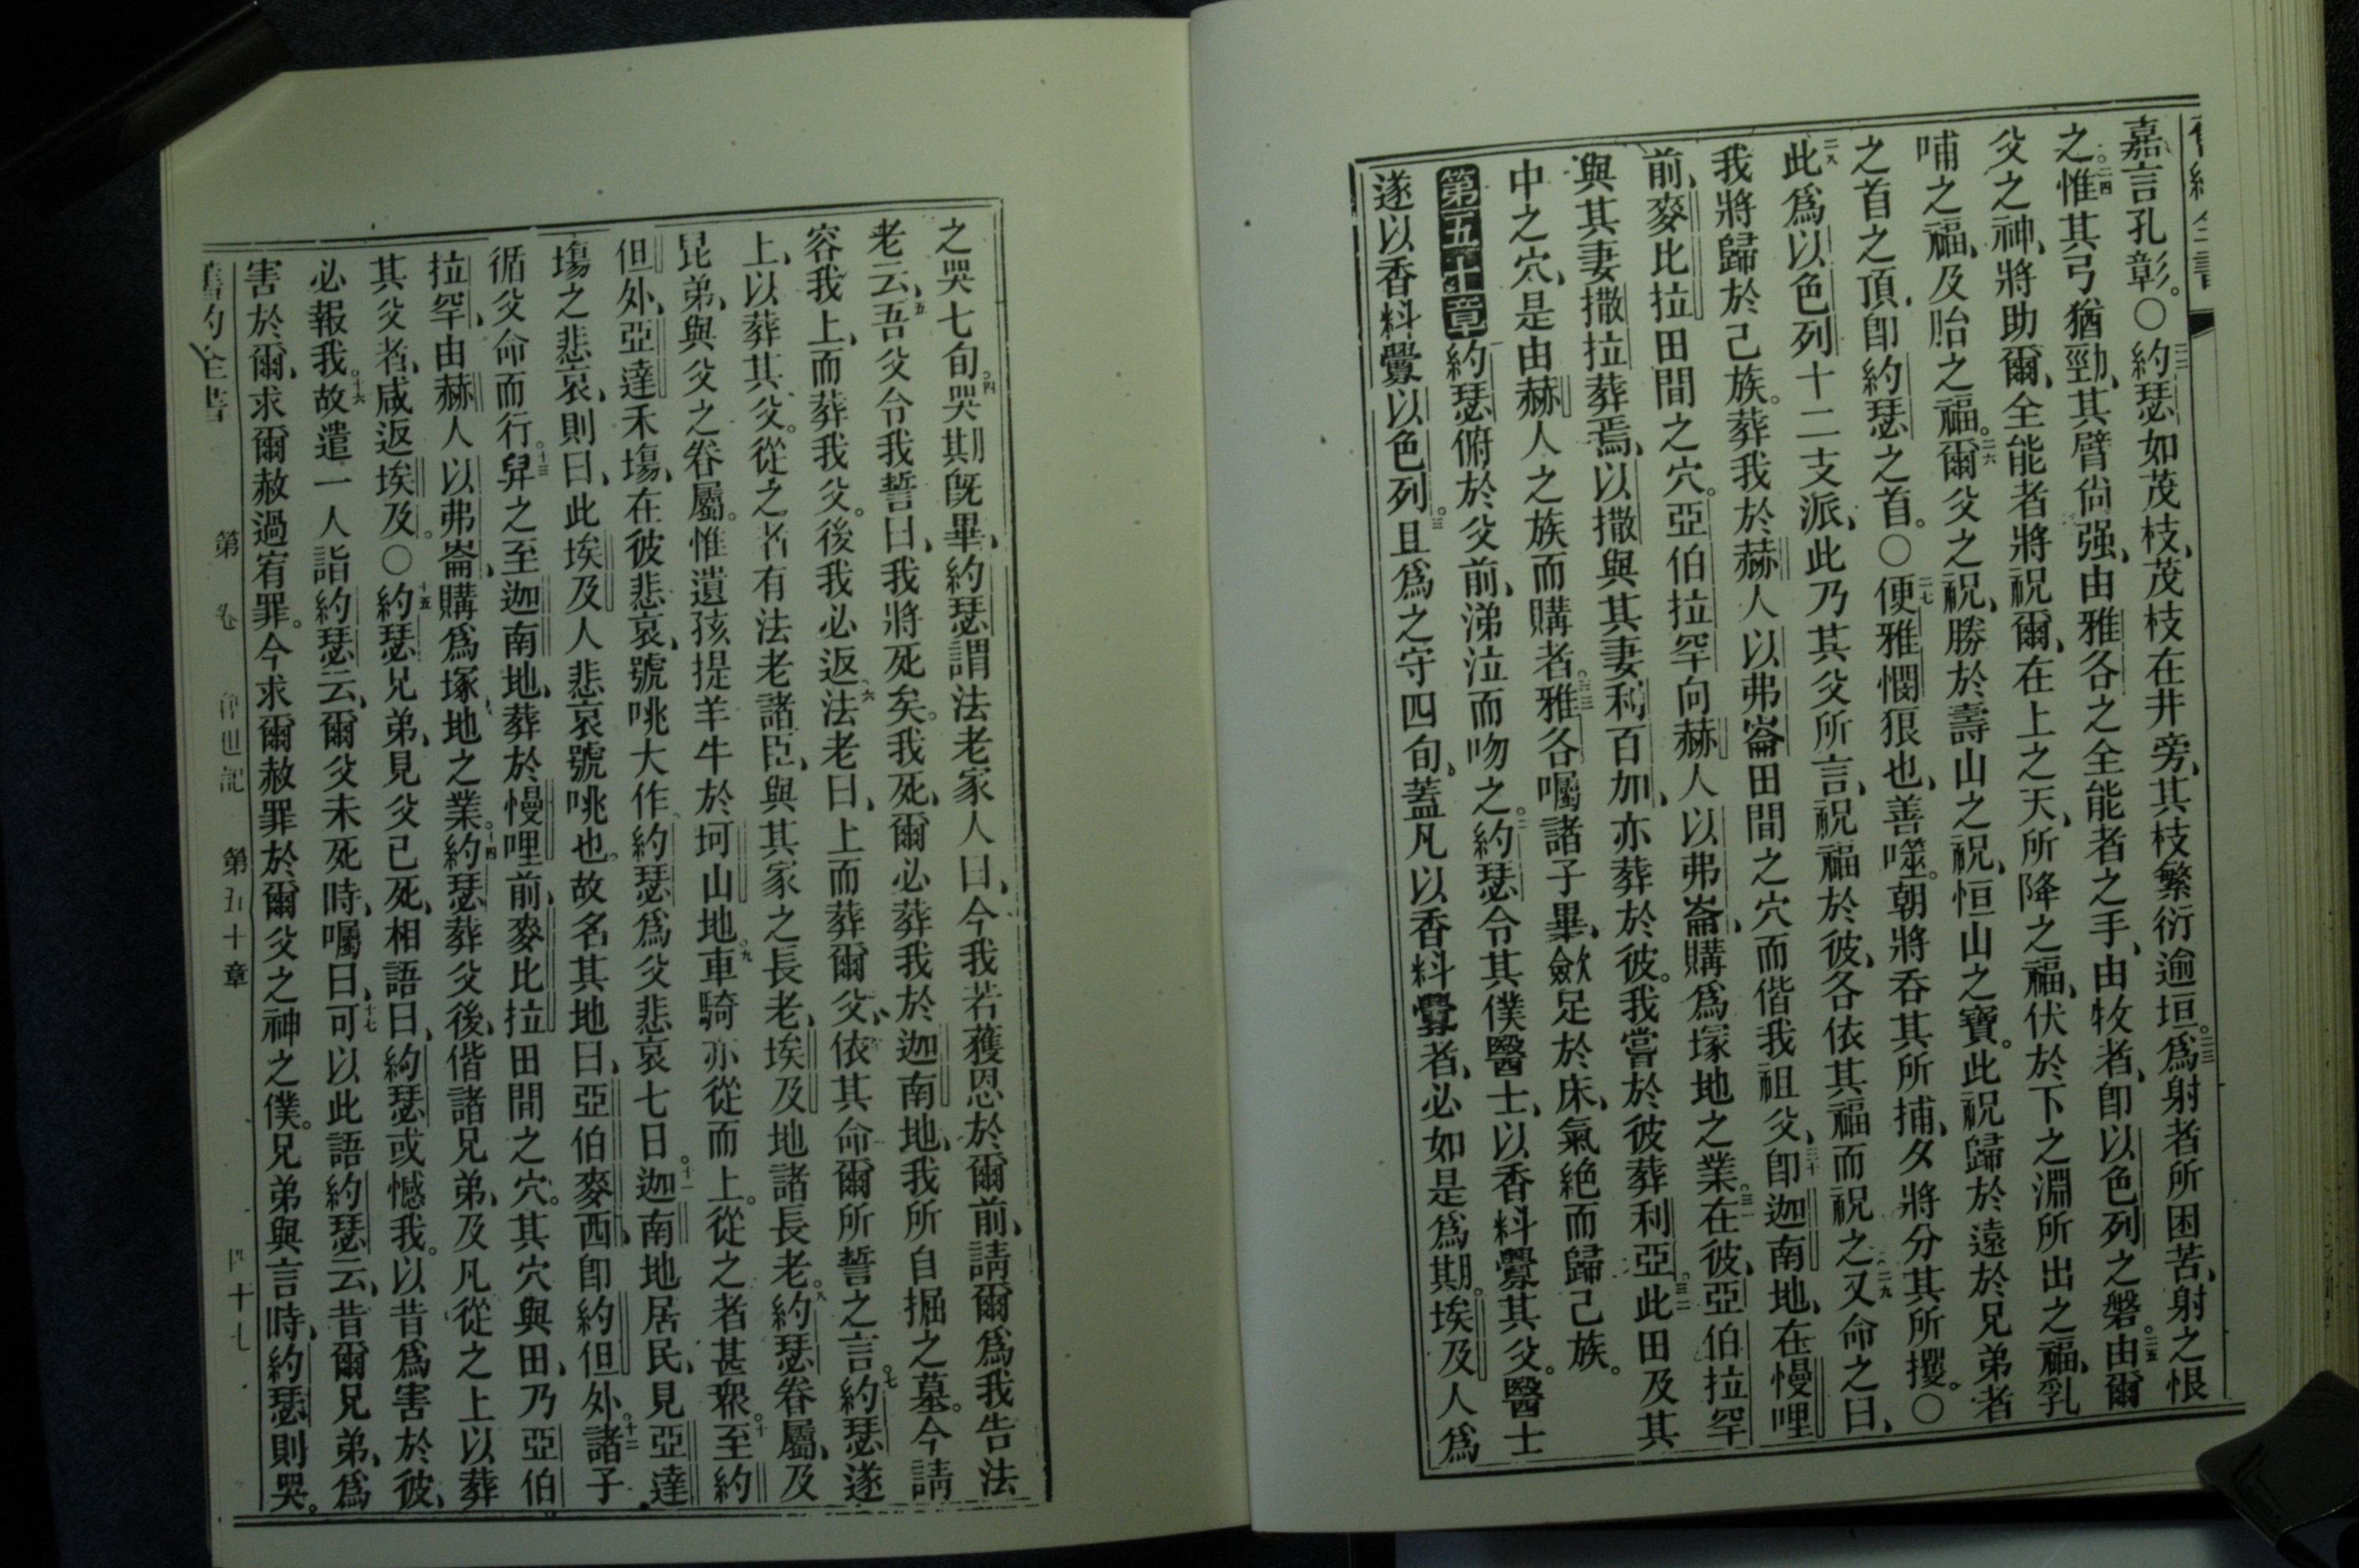 舊約全書
嘉言孔彰。〇二二約瑟如茂枝、茂枝在井旁、其枝繁衍逾垣。二三爲射者所困苦、射之恨
之。二四惟其弓猶勁、其臂尙强、由雅各之全能者之手、由牧者、卽以色列之磐。二五由爾
父之神、將助爾、全能者將祝爾、在上之天、所降之福、伏於下之淵所出之福、乳
哺之福、及胎之福。二六爾父之祝、勝於壽山之祝、恒山之寶。此祝歸於遠於兄弟者
之首之頂、卽約瑟之首。〇二七便雅憫狼也、善噬。朝將吞其所捕、夕將分其所攫。〇
二八此爲以色列十二支派、此乃其父所言、祝福於彼、各依其福而祝之、二九又命之曰、
我將歸於己族。葬我於赫人以弗崙田間之穴而偕我祖父、三十卽迦南地、在慢哩
前、麥比拉田間之穴。亞伯拉罕向赫人以弗崙、購爲塚地之業。三一在彼、亞伯拉罕
與其妻撒拉葬焉、以撒與其妻利百加、亦葬於彼。我嘗於彼葬利亞。三二此田及其
中之穴、是由赫人之族而購者。三三雅各囑諸子畢、歛足於床、氣絕而歸己族。
第五十章 約瑟俯於父前、涕泣而吻之。二約瑟令其僕醫士、以香料釁其父。醫士
遂以香料釁以色列。三且爲之守四旬。蓋凡以香料釁者、必如是爲期。埃及人爲
之哭七旬。四哭期旣畢、約瑟謂法老家人曰、今我若獲恩於爾前、請爾爲我告法
老云、五吾父令我誓曰、我將死矣。我死、爾必葬我於迦南地、我所自掘之墓。今請
容我上、而葬我父。後我必返、六法老曰、上而葬爾父、依其命爾所誓之言。七約瑟遂
上、以葬其父。從之者有法老諸臣、與其家之長老、埃及地諸長老。八約瑟眷屬、及
昆弟、與父之眷屬。惟遺孩提羊牛於坷山地。九車騎亦從而上。從之者甚衆。十至約
但外、亞達禾塲、在彼悲哀、號咷大作、約瑟爲父悲哀七日。十一迦南地居民、見亞達
塲之悲哀、則曰、此埃及人悲哀號咷也。故名其地曰、亞伯麥西、卽約但外。十二諸子
循父命而行。十三舁之至迦南地、葬於慢哩前、麥比拉田間之穴。其穴與田、乃亞伯
拉罕、由赫人以弗崙、購爲塚地之業。十四約瑟葬父後、偕諸兄弟、及凡從之上以葬
其父者、咸返埃及。〇十五約瑟兄弟、見父已死、相語曰、約瑟或憾我。以昔爲害於彼、
必報我。十六故遣一人詣約瑟云、爾父未死時、囑曰、十七可以此語約瑟云、昔爾兄弟、爲
害於爾、求爾赦過宥罪。今求爾赦罪於爾父之神之僕。兄弟與言時、約瑟則哭。
舊約全書 第 卷 創世記 第五十章 四十七